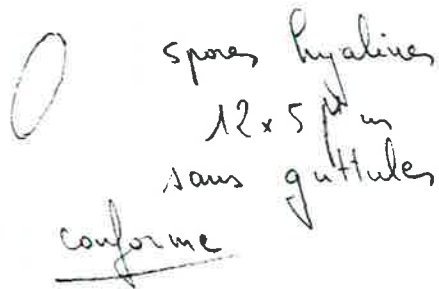 spores hyalines
12 x 5 µm
sans guttules
conforme